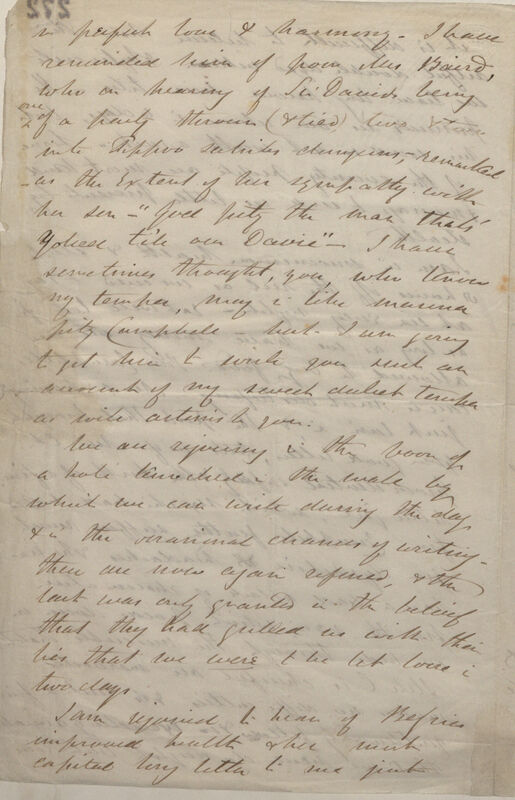 272
in perfect love & harmony - I have
reminded him of poor Mrs Baird,
who on hearing of Sir Davids being
one
of a party thrown (& tied) two & two
into Tippoo Saibs dungeons, - remarked
as the Extent of her sympathy with
her son - "God pity the man that's
Yoked till our Davie" - I have
sometimes thought, you, who know
my temper, may in like manner
pity Campbell - but I am going
to get him to write you such an
account of my sweet dulcet temper
as will astonish you.
We are rejoicing in the boon of
a hole knocked in the wall by
which we can write during the day
& in the occasional chances of writing -
these are now again refused, & the
last was only granted in the belief
that they had gulled us with their
lies that we were to be let loose in
two days
I am rejoiced to hear of
improved health & her most
capital long letter to me just